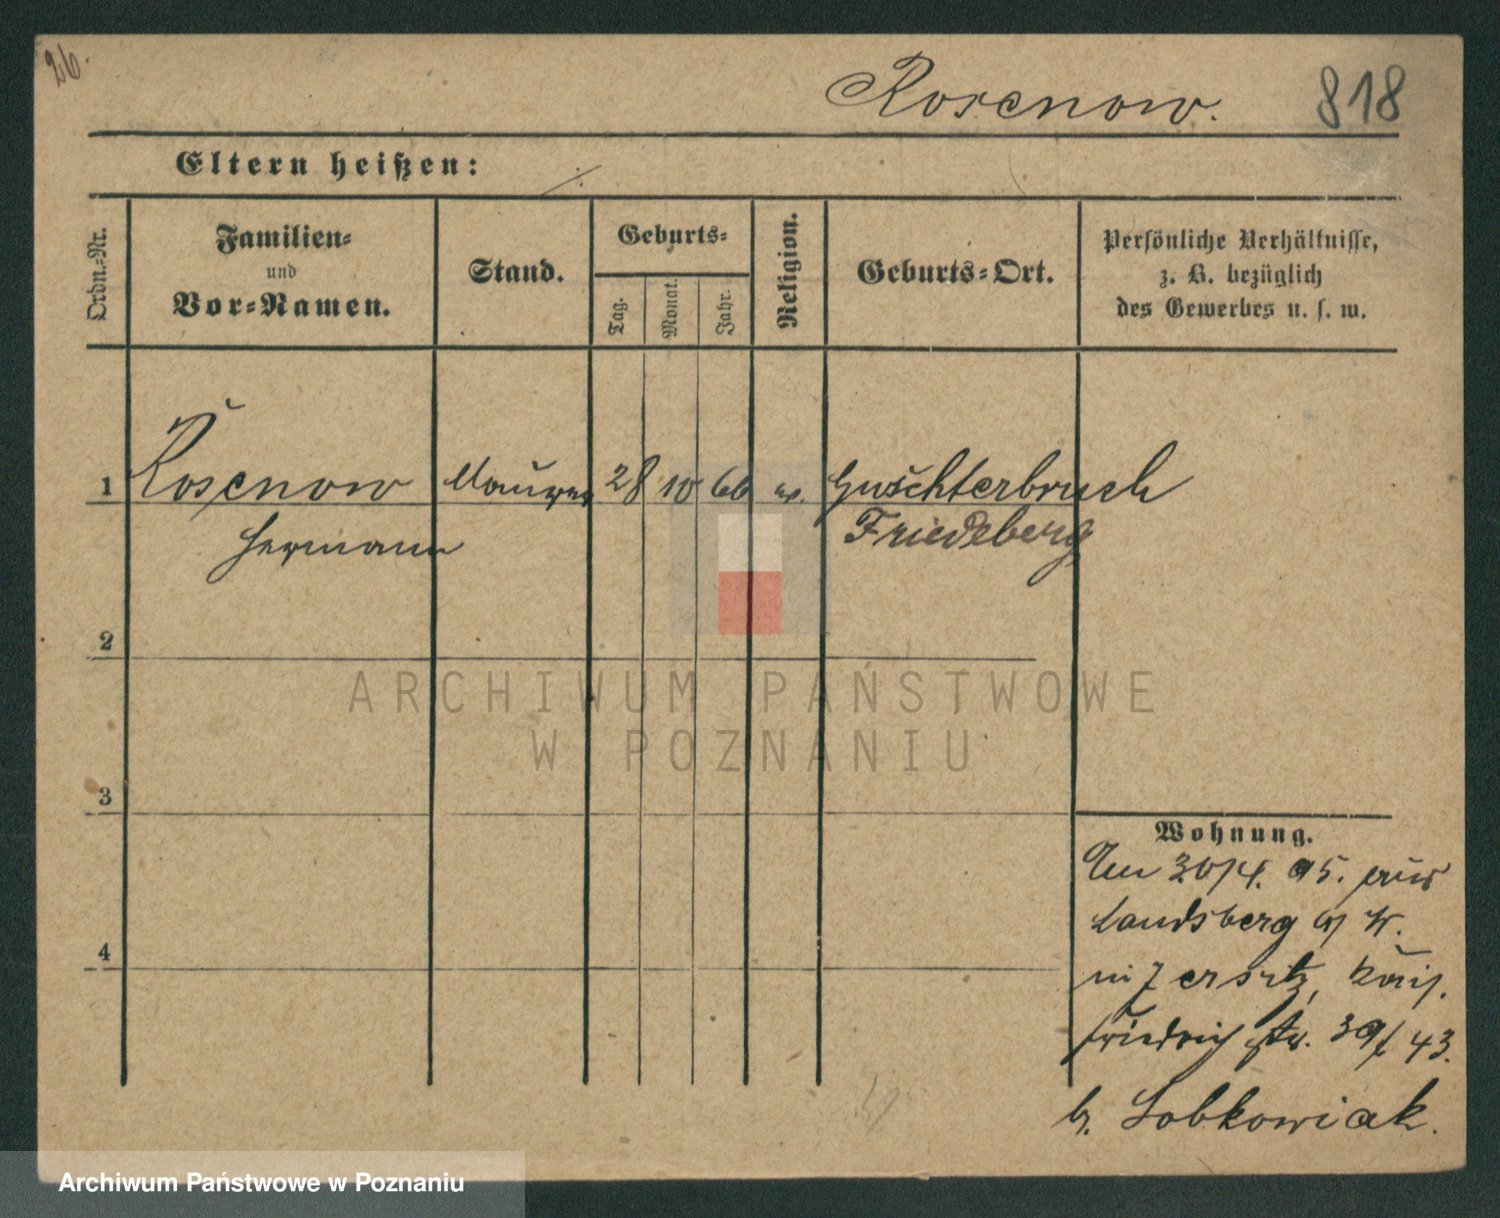 26.
Rosenow.
818
Eltern heißen:
Ordn.-Nr.
Familien-
und
Vor-Namen.
Stand.
Geburts-
Tag.
Monat.
Jahr.
Religion.
Geburts-Ort.
Persönliche Verhältnisse,
z. B. bezüglich
des Gewerbes u. s. w.
1 Rosenow Maurer 28 10 66 ev. Guschterbruch
Hermann Friedeberg
2
3
4
Wohnung.
Am 30/4. 95. aus
Landsberg a/ W.
in Jersitz, Kais.
Friedrich str. 39/43.
b. Lobkowiak.
ARCHIWUM PAŃSTWOWE
W POZNANIU
Archiwum Państwowe w Poznaniu